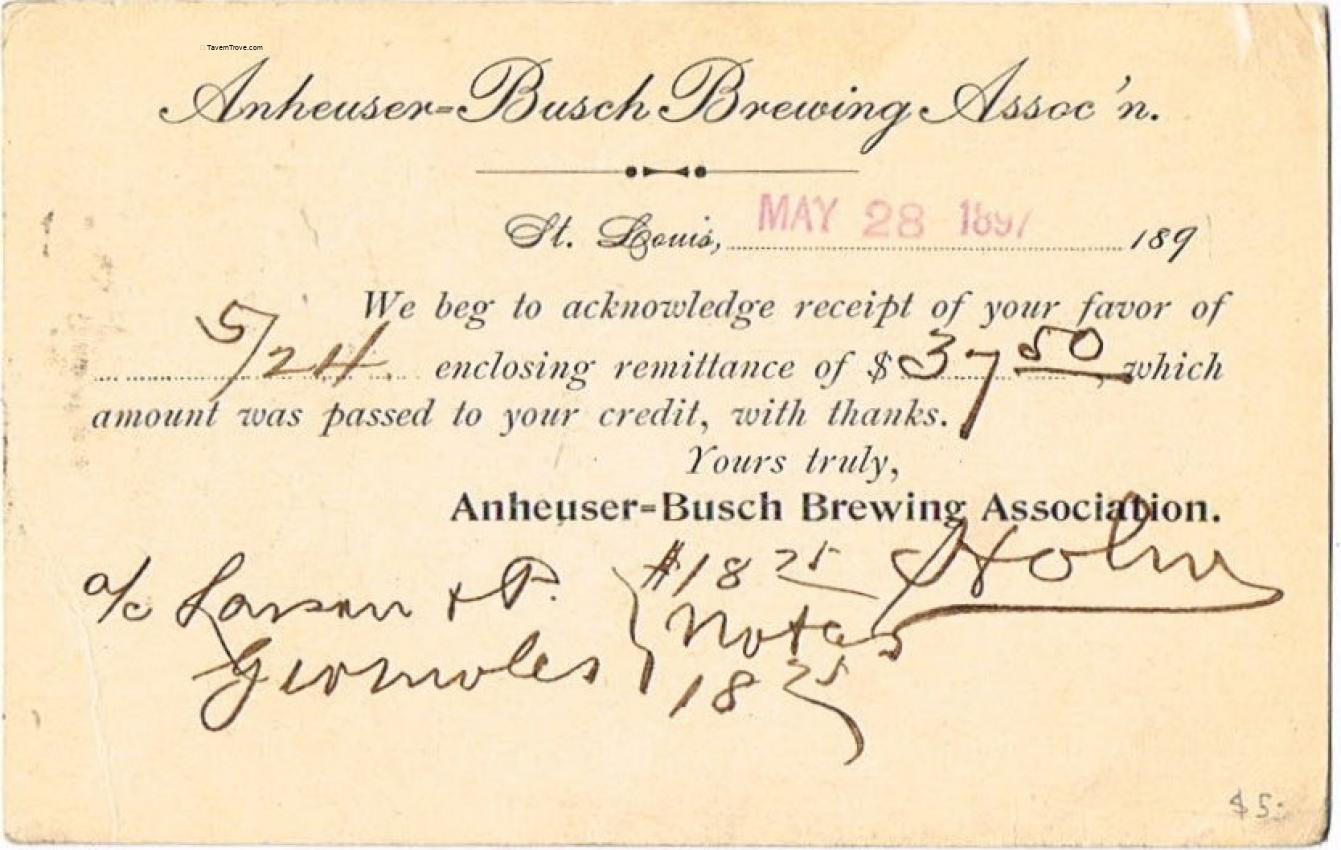 TavernTrove.com
Anheuser-Busch Brewing Assoc'n.
St. Louis, MAY 28 1897 189
We beg to acknowledge receipt of your favor of
5/24 enclosing remittance of $37 50, which
amount was passed to your credit, with thanks.
Yours truly,
Anheuser-Busch Brewing Association.
Holm
a/c Larson & P. $18 75
Notes
18 75
$5